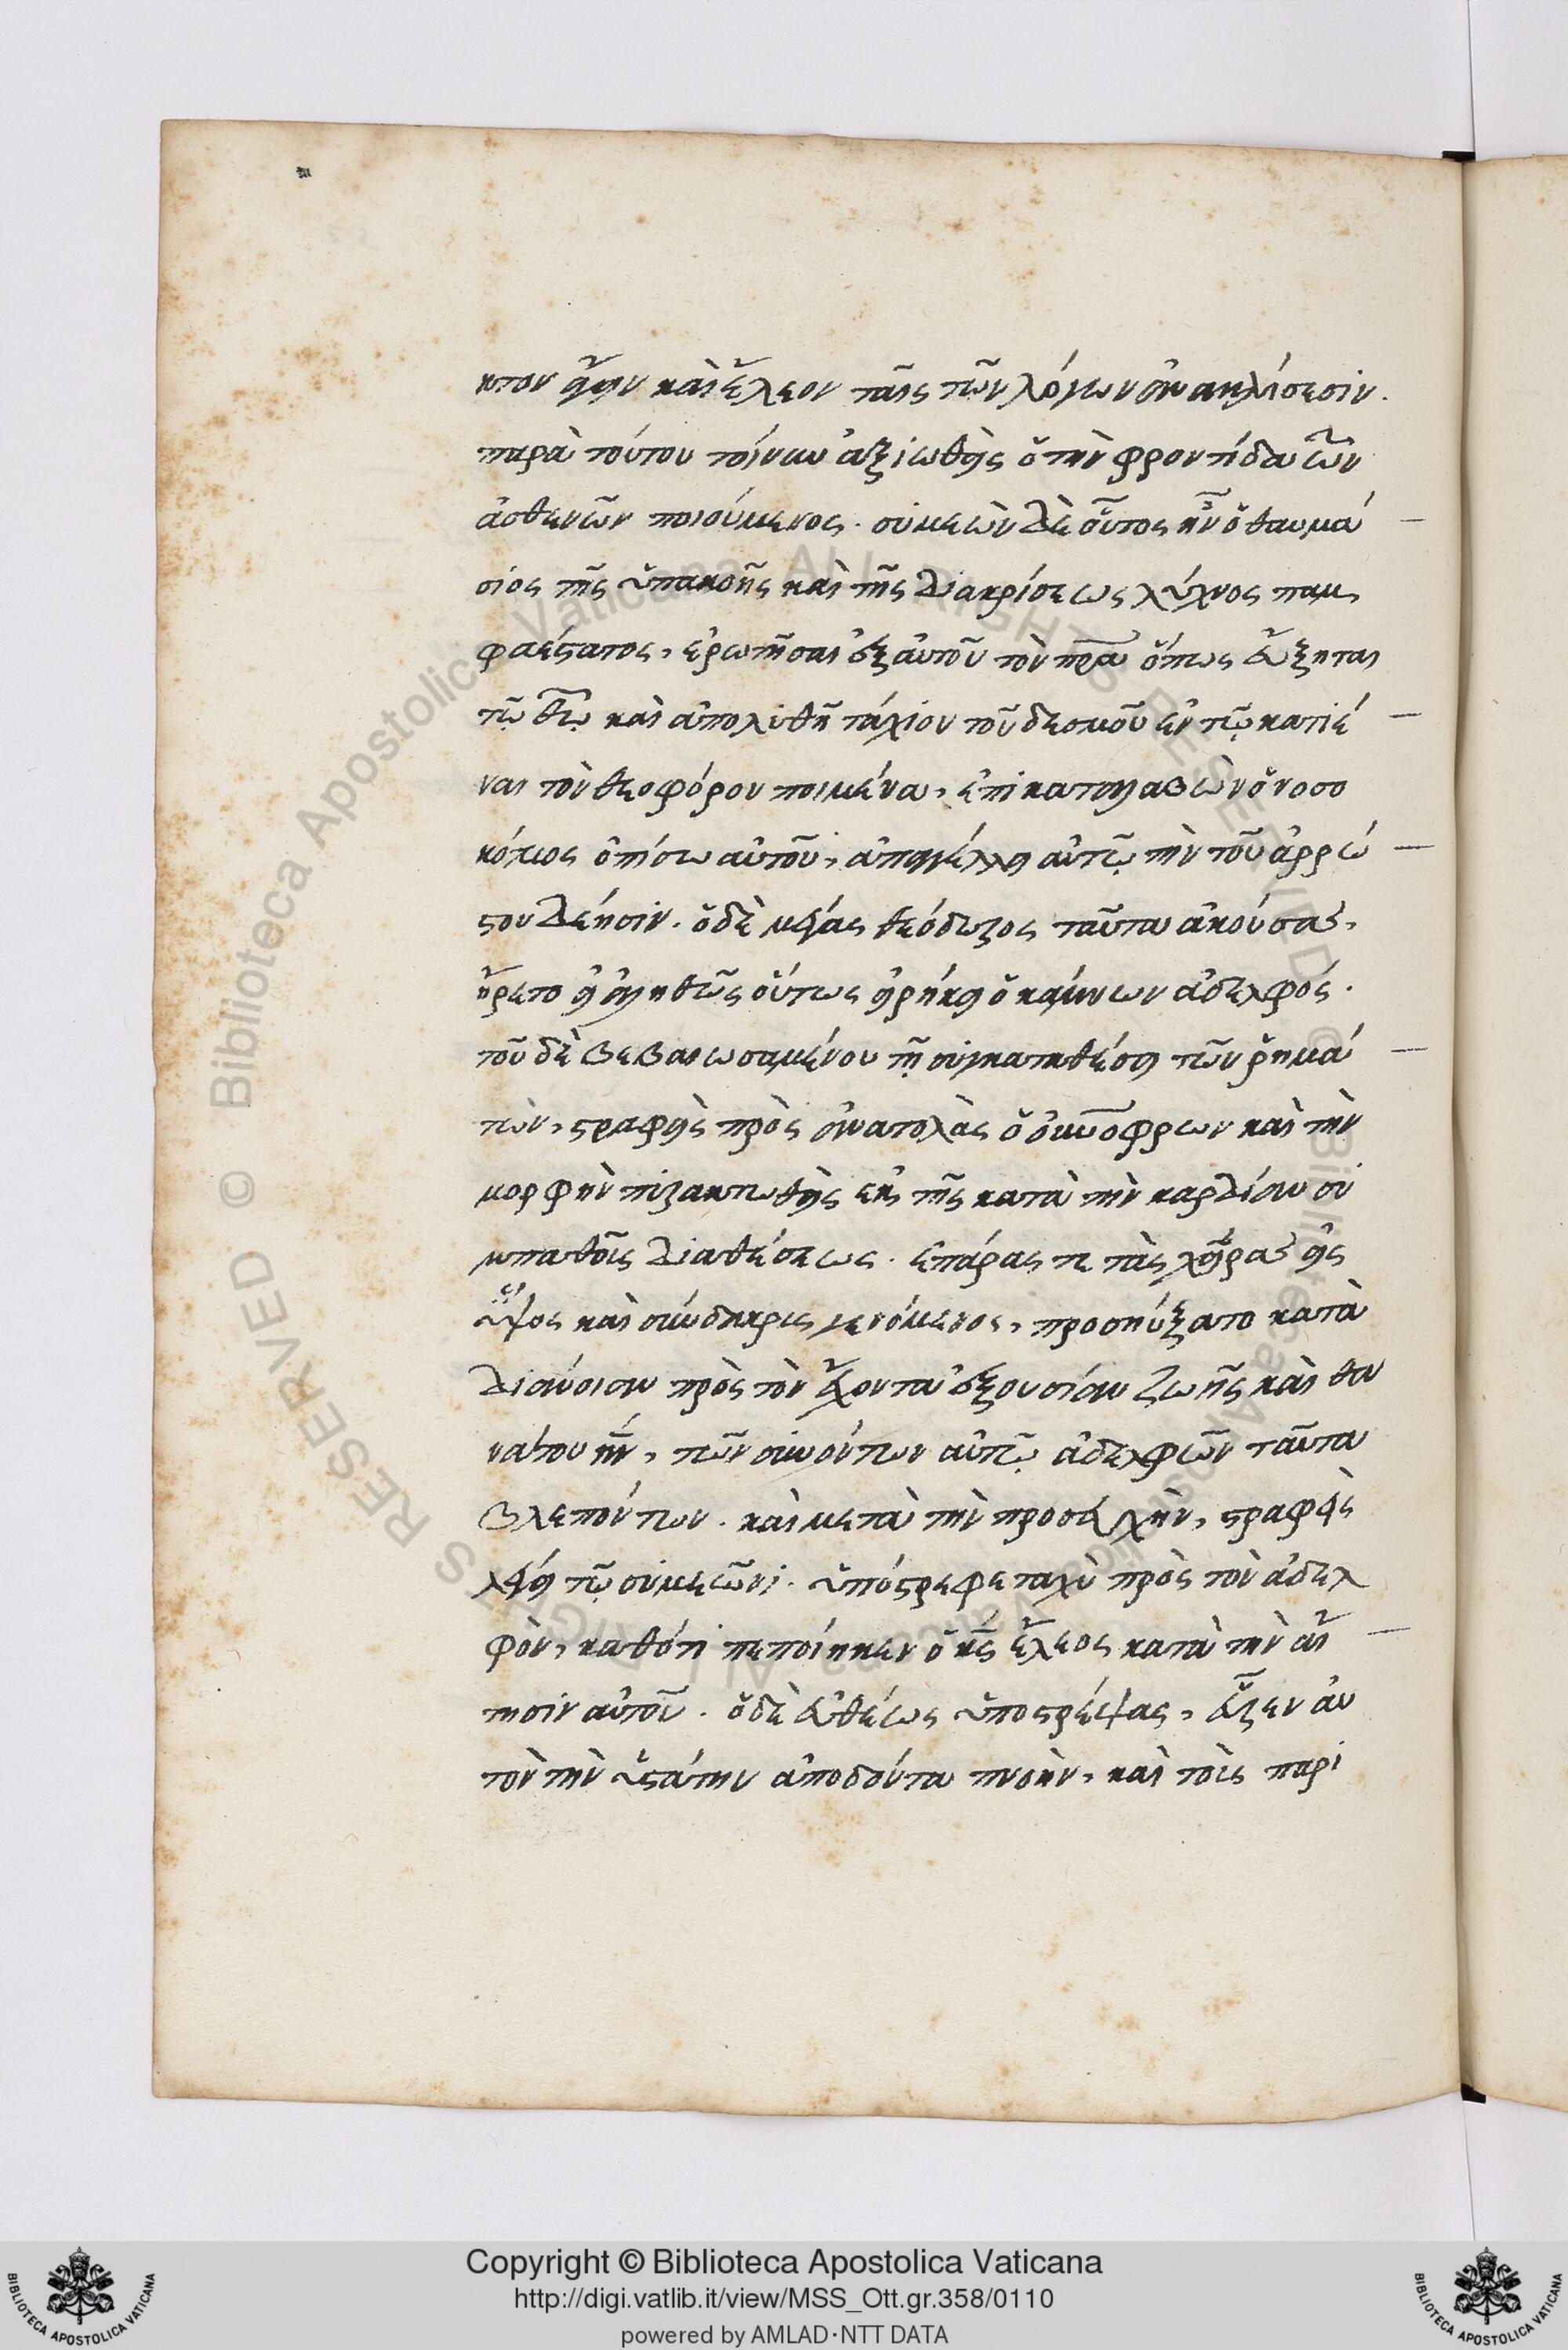 κτον εἶχεν καὶ ἔλεον ταῖς τῶν λόγων ἀνακλίσεσιν.
παρὰ τούτου τοίνυν ἀξιωθεὶς ὁ τὴν φροντίδα τῶν
ἀσθενῶν ποιούμενος. συμεὼν δὲ οὗτος ἦν ὁ θαυμά
σιος τῆς ὑπακοῆς καὶ τῆς διακρίσεως λύχνος παμ
φαέστατος, ἐρωτῆσαι ἐξ αὐτοῦ τὸν πρα ὅπως εὔξηται
τῷ θῶ καὶ ἀπολυθῆ τάχιον τοῦ δεσμοῦ ἐν τῷ κατιέ
ναι τὸν θεοφόρον ποιμένα, ἐπικαταλαβὼν ὁ νοσο
κόμος ὀπίσω αὐτοῦ, ἀπαγγέλλει αὐτῷ τὴν τοῦ ἀρρώ
στου δέησιν. ὁ δὲ μέγας θεόδωρος ταῦτα ἀκούσας,
ἤρετο εἰ ἀληθῶς οὕτως εἰρήκει ὁ κάμνων ἀδελφός.
τοῦ δὲ βεβαιωσαμένου τῇ συγκαταθέσει τῶν ῥημά
των, στραφεὶς πρὸς ἀνατολὰς ὁ οὐνοφρων καὶ τὴν
μορφὴν πυρακτωθεὶς ἐκ τῆς κατὰ τὴν καρδίαν συ
μπαθοῦς διαθέσεως. ἐπάρας τε τὰς χεῖρας εἰς
ὕψος καὶ σύνδακρυς γενόμενος, προσηύξατο κατὰ
διάνοιαν πρὸς τὸν ἔχοντα ἐξουσίαν ζωῆς καὶ θα
νάτου κν, τῶν συνόντων αὐτῷ ἀδελφῶν ταῦτα
βλεπόντων. καὶ μετὰ τὴν προσευχὴν, στραφεὶς
λέγει τῷ συμεῶνι. ὑπόστρεφε ταχὺ πρὸς τὸν ἀδελ
φὸν, καθότι πεποίηκεν ὁ κς ἔλεος κατὰ τὴν αἴ
τησιν αὐτοῦ. ὁ δὲ εὐθέως ὑποστρέψας, εὗρεν αὐ
τὸν τὴν ὑστάτην ἀποδόντα πνοὴν, καὶ τοῖς παρι
Copyright © Biblioteca Apostolica Vaticana
http://digi.vatlib.it/view/MSS_Ott.gr.358/0110
powered by AMLAD·NTT DATA